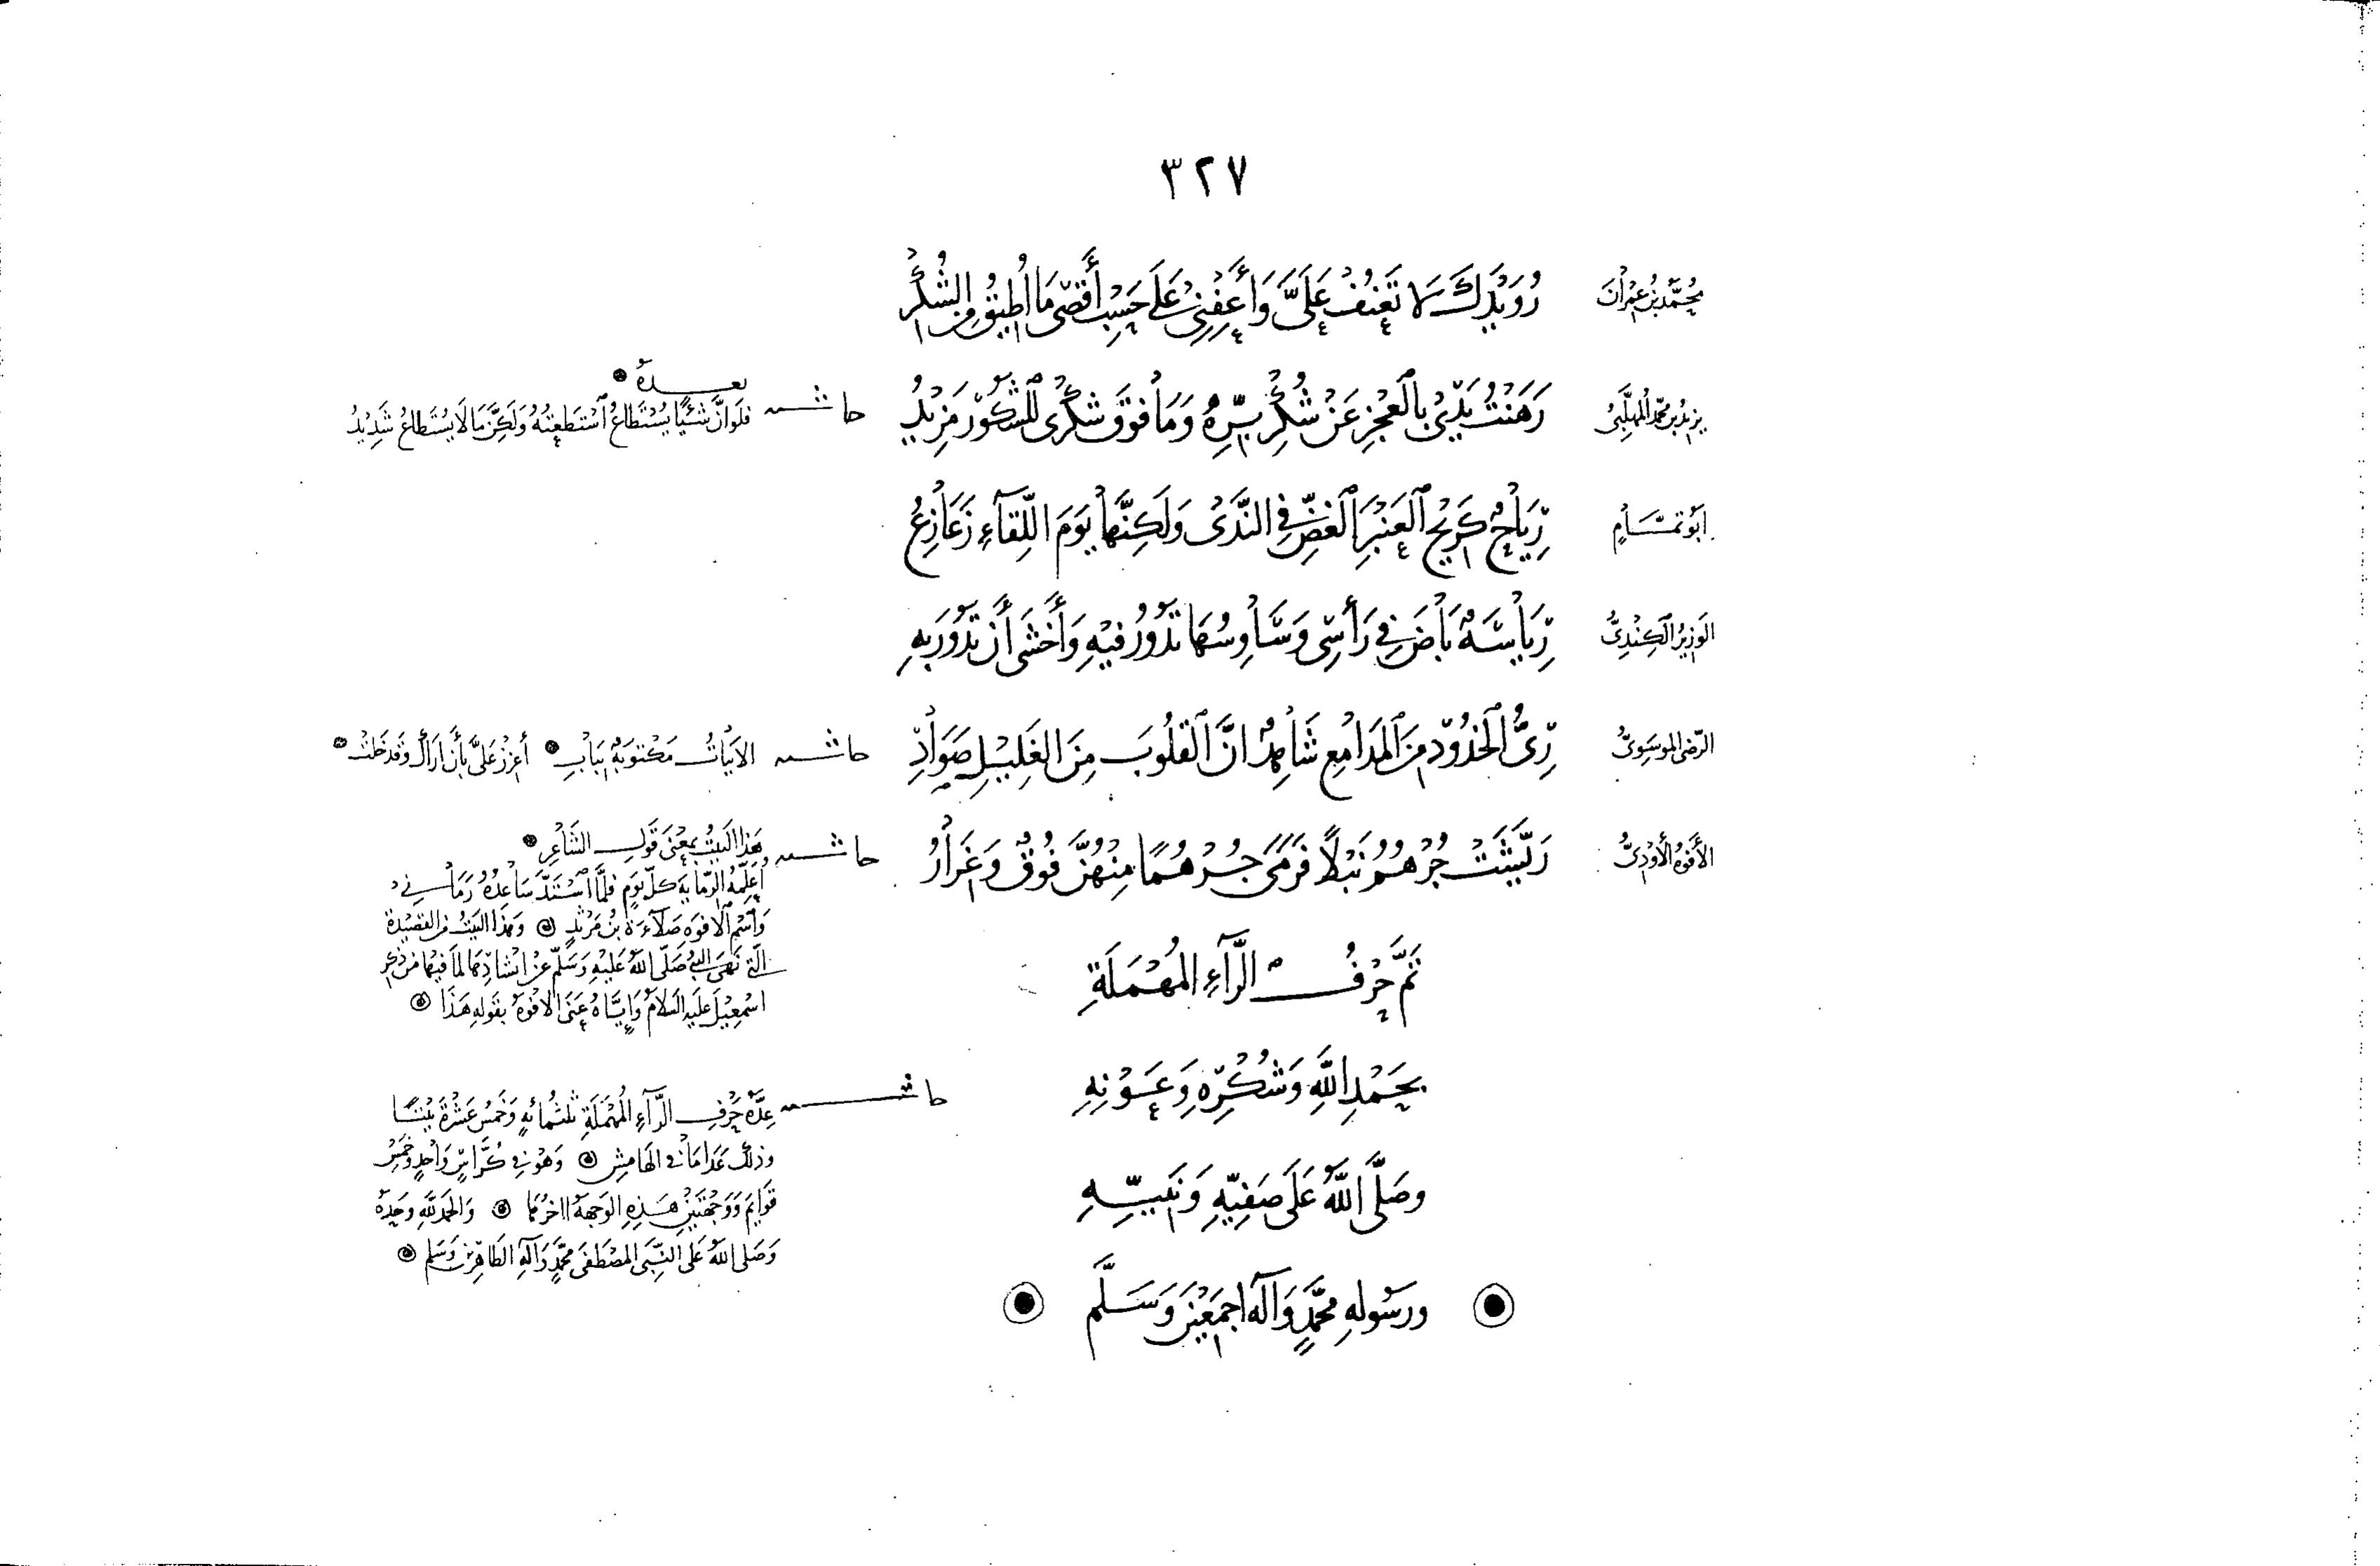 ٣٢٧
مُحمَّدُ بنُ عِمْرانَ
رُوَيْدَكَ لَا تَعْنُفْ عَلَيَّ وَأَعْفِنِي عَلَى حَسْبِ أَقْصَى مَا أُطِيقُ مِنَ الشُّكْرِ
يزيدُ بن محمّد المُهلَّبيُّ
رَهَنْتُ يَدِي بِالْعَجْزِ عَنْ شُكْرِ بِرِّهِ وَمَا فَوْقَ شُكْرِي لِلشَّكُورِ مَزِيدُ
حاشية
بعده
فَلَوْ انَّ شَيْئًا يُسْتَطَاعُ ٱسْتَطَعْتُهُ وَلَكِنَّ مَا لَا يُسْتَطَاعُ شَدِيْدُ
أبُو تمَّامٍ
رِيَاحٌ كَرِيْحِ ٱلْعَنْبَرِ ٱلْغَضِّ فِي النَّدَى وَلَكِنَّهَا يَوْمَ اللِّقَآءِ زَعَازِعُ
الوَزِيرُ الكِنْدِيُّ
رِيَاسَةٌ بَاضَ فِي رَأسِي وَسَاوِسُهَا تَدُورُ فِيْهِ وَأَخْشَى أَنْ تَدُورَ بِهِ
الرّضى الموسَوِيّ
رِيُّ ٱلْخُدُودِ مِنَ ٱلْمَدَامِعِ شَاهِدٌ انَّ ٱلْقُلُوبَ مِنَ الغَلِيْلِ صَوَادِ
حاشية
الأبْيَاتُ مَكْتوبَةٌ بِبَابِ أَعْزِزْ عَلَيَّ بِأَنْ أَرَاكَ وَقَدْ خَلَتْ
الأَفْوَهُ الأَوْدِيُّ
رَيَّشَتْ جُرْهُمُ نَبْلًا فَرَمَى جُرْهُمًا مِنْهُنَّ فُوقٌ وَغِرَارُ
حاشية
هَذا البَيْتُ بمَعْنَى قَولِ الشَّاعِرِ
أُعَلِّمُهُ الرِّمَايَةَ كلَّ يَوْمٍ فَلَمَّا ٱسْتَدَّ سَاعِدُهُ رَمَانِي
وَٱسْمُ ٱلافوَه صَلَآءَةُ بنُ مَرْثدٍ وَهَذا البَيْتُ مِن القَصِيْدة
الَّتِي نَهَى النَّبيُّ صَلَّى اللَّهُ عَلَيْهِ وَسَلَّم عَنْ انشادِهَا لِمَا فِيْهَا مِنْ ذِكرِ
اسْمعِيْلَ عَلَيْه السَّلَامُ وَإيَّاهُ عَنَى الافوَهُ بقَولِهِ هَذَا
تَمَّ حَرْفُ الرَّآءِ المُهْمَلَةِ
بِحَمْدِ اللَّهِ وَشُكْرِهِ وَعَوْنِهِ
وَصَلَّى اللَّهُ عَلَى صَفِيِّهِ وَنَبِيِّهِ
ورَسُولِهِ مُحمَّدٍ وَآلِه اجْمَعِيْنَ وَسَلَّم
حاشية
عِدَّةُ حَرْفِ الرَّآءِ المُهْمَلَةِ ثَلثمائةٍ وَخَمسُ عَشْرَةَ بَيْتًا
وَذلكَ عَدَا مَا في الهَامِشِ وَهُوَ في كُرَّاسٍ وَاحدٍ وَخَمسِ
قَوَايمَ وَوَجْهَتَيْنِ هَذِهِ الوَجهَةُ اخرُهُمَا وَالحَمْدُ لِلَّهِ وَحدَهُ
وَصَلى اللَّهُ عَلى النَّبِيِّ المُصْطَفَى مُحمَّدٍ وَآلِهِ الطَاهِرِين وَسَلم